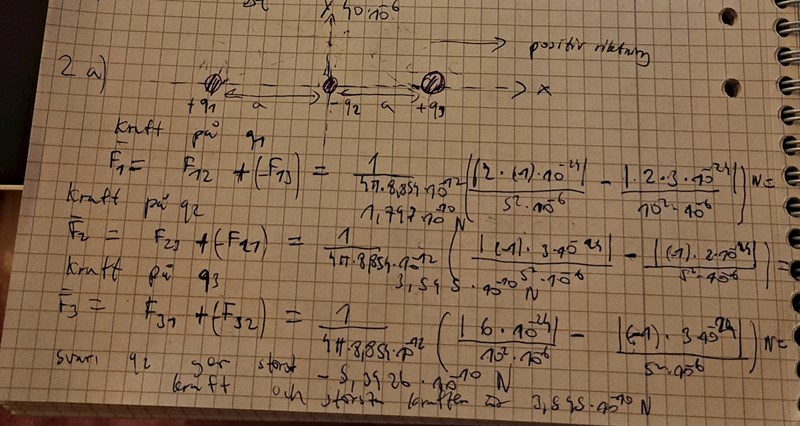 X 40·10⁻⁶
positiv riktning
2 a)
X
+q1 a -q2 a +q3
Kraft på q1
F̄₁ = F₁₂ + (-F₁₃) = 1/(4π·8,854·10⁻¹²) (|2·(-1)·10⁻²⁴|/(5²·10⁻⁶) - |2·3·10⁻²⁴|/(10²·10⁻⁶)) N =
1,797·10⁻¹⁰ N
Kraft på q2
F̄₂ = F₂₃ + (-F₂₁) = 1/(4π·8,854·10⁻¹²) (|(-1)·3·10⁻²⁴|/(5²·10⁻⁶) - |(-1)·2·10⁻²⁴|/(5²·10⁻⁶)) =
3,595·10⁻¹⁰ N
Kraft på q3
F̄₃ = F₃₁ + (-F₃₂) = 1/(4π·8,854·10⁻¹²) (|6·10⁻²⁴|/(10²·10⁻⁶) - |(-1)·3·10⁻²⁴|/(5²·10⁻⁶)) N =
- 5,3926·10⁻¹⁰ N
svar: q2 gör störst
kraft och största kraften är 3,595·10⁻¹⁰ N